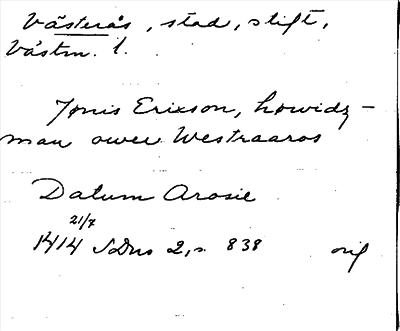 Västerås, stad, stift,
Västm. l.
Jönis Erixson, howidz-
man ower Westraaros
Datum Arosie
21/7
1414 SDns 2, s. 838 orig